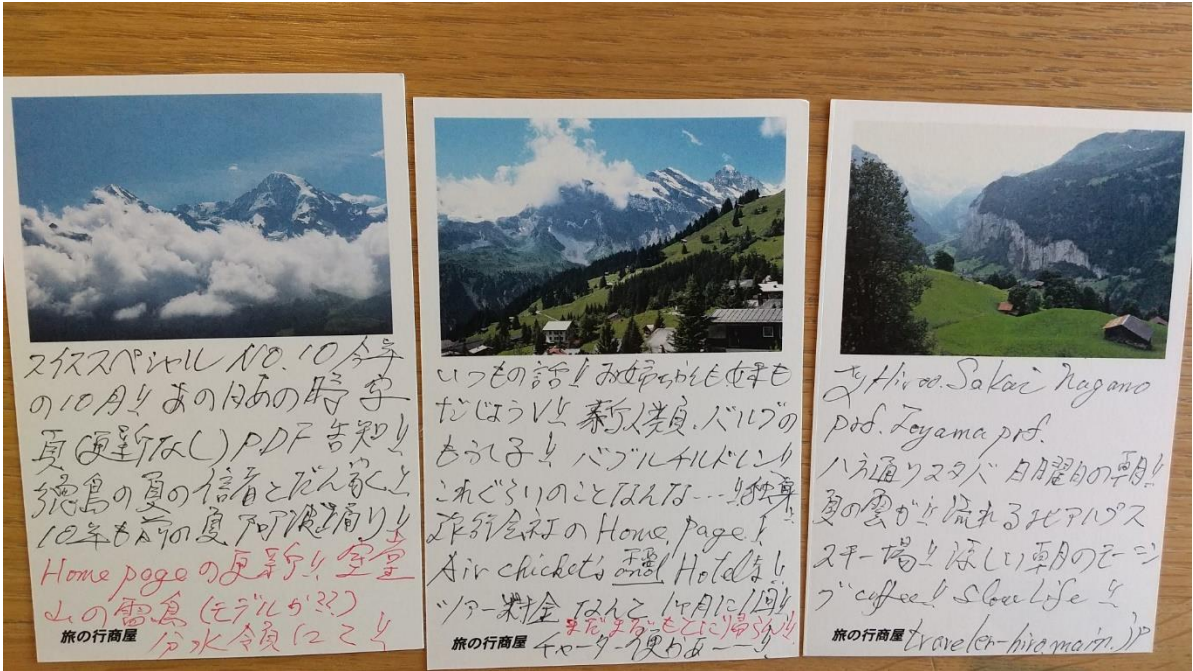 スイススペシャル NO.10 今年
の10月!! あの日あの時
夏(更新なし) PDF 告知!!
徳島の夏の
10年も前の夏 阿波踊り!!
Home pageの更新!! 室堂
山の雷鳥(モデルか??)
分水嶺にて!!
旅の行商屋
いつもの話!! お姉ちゃんも妹も
だじょうV!! 新人類.バルブの
もうし子!! バブルチルドレン!!
これぐらいのことなんな---!!独身!!
旅行会社の Home page!
Air chicket's and Hotelは!!
ツアー料金 なんて 1ヶ月に1回!!
まだまだ
旅の行商屋 チャーター便かぁーー!!
by Hiroo. Sakai Nagano
prof. Toyama prf.
八方通りスタバ 日曜日の朝!!
夏の雲が!! 流れる北アルプス
スキー場!! 涼しい朝のモーニン
グ coffee!! Slow Life !!
旅の行商屋 traveler-hiro